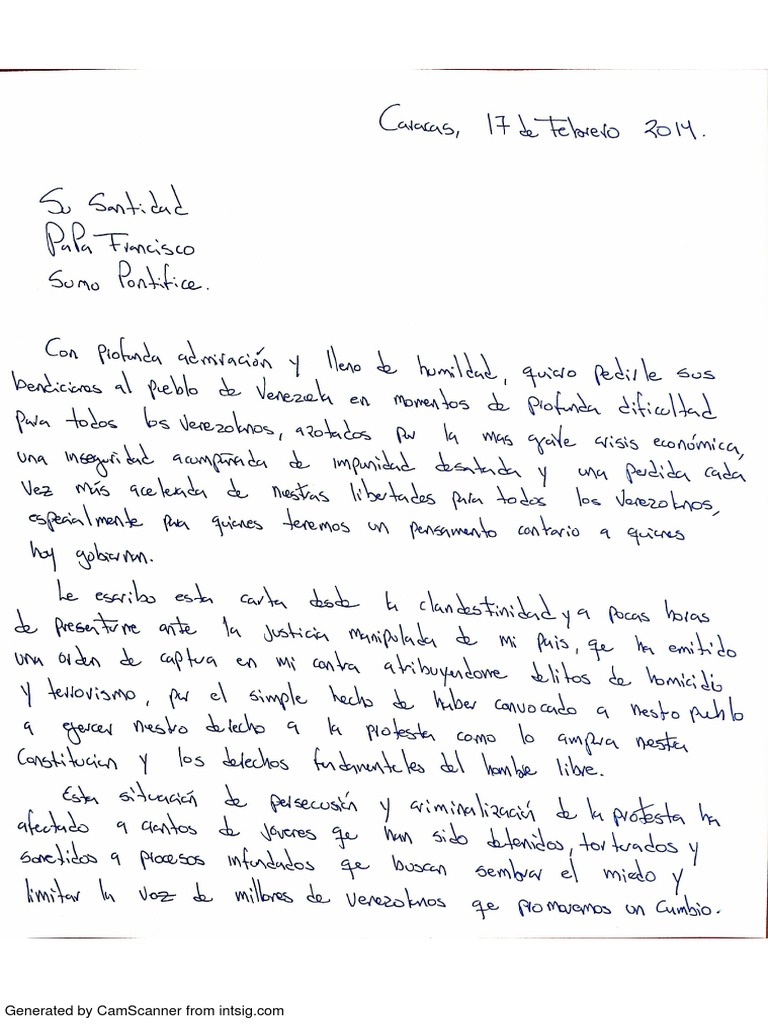 Caracas, 17 de Febrero 2014.
Su Santidad
Papa Francisco
Sumo Pontifice.
Con profunda admiración y lleno de humildad, quiero pedirle sus
bendiciones al pueblo de Venezuela en momentos de profunda dificultad
para todos los Venezolanos, azotados por la mas grave crisis económica,
una inseguridad acompañada de impunidad desatada y una perdida cada
vez más acelerada de nuestras libertades para todos los Venezolanos,
especialmente para quienes tenemos un pensamento contrario a quienes
hoy gobiernan.
Le escribo esta carta desde la clandestinidad y a pocas horas
de presentarme ante la justicia manipulada de mi pais, que ha emitido
una orden de captura en mi contra atribuyendome delitos de homicidio
y terrorismo, por el simple hecho de haber convocado a nuestro pueblo
a ejercer nuestro derecho a la protesta como lo ampara nuestra
Constitucion y los derechos fundamentales del hombre libre.
Esta situación de persecusión y criminalización de la protesta ha
afectado a cientos de jovenes que han sido detenidos, torturados y
sometidos a procesos infundados que buscan sembrar el miedo y
limitar la voz de millones de Venezolanos que promovemos un Cambio.
Generated by CamScanner from intsig.com